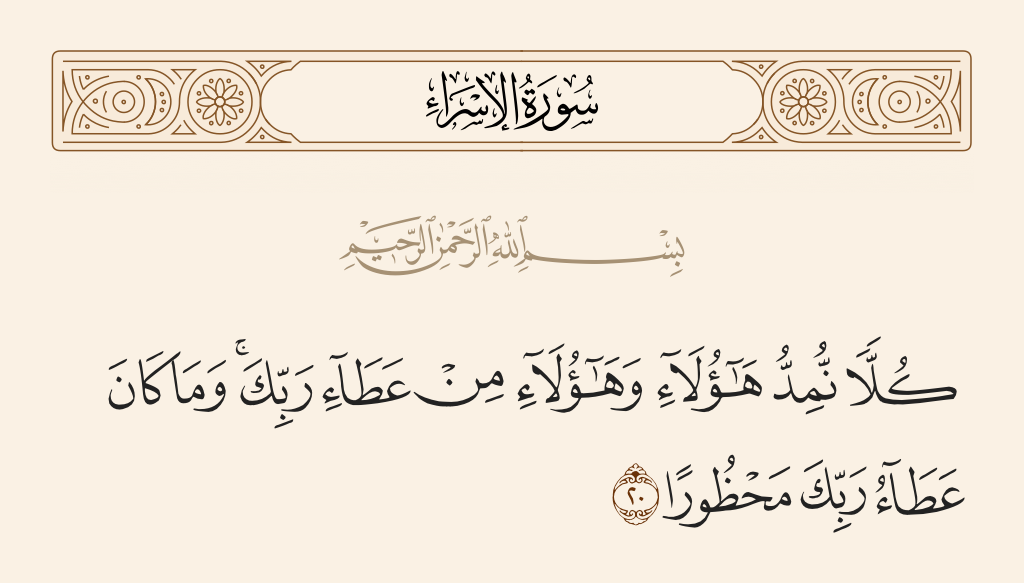 سُورَةُ الإِسْرَاءِ
بِسْمِ ٱللَّهِ ٱلرَّحْمَٰنِ ٱلرَّحِيمِ
كُلًّا نُّمِدُّ هَٰٓؤُلَآءِ وَهَٰٓؤُلَآءِ مِنْ عَطَآءِ رَبِّكَ ۚ وَمَا كَانَ
عَطَآءُ رَبِّكَ مَحْظُورًا ٢٠